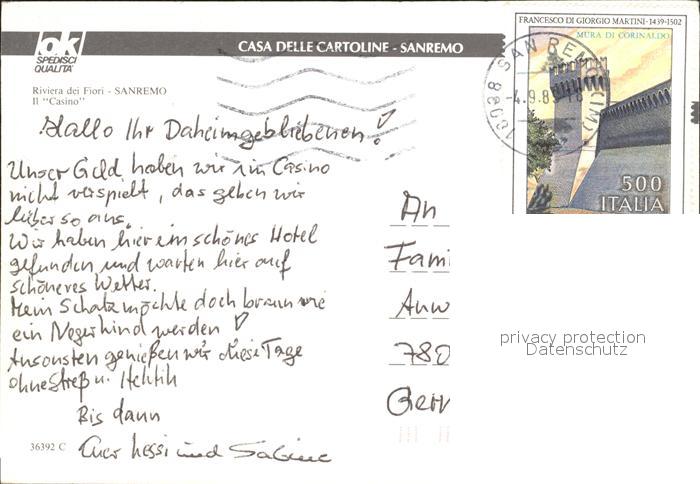 ok
SPEDISCI
QUALITA'
CASA DELLE CARTOLINE - SANREMO
Riviera dei Fiori - SANREMO
Il "Casino"
FRANCESCO DI GIORGIO MARTINI·1439-1502
MURA DI CORINALDO
500
ITALIA
18038 SAN REMO (IM)
-4.9.85
Hallo Ihr Daheimgebliebenen!
Unser Geld haben wir im Casino
nicht verspielt, das geben wir
lieber so aus.
Wir haben hier ein schönes Hotel
gefunden und warten hier auf
schöneres Wetter.
Mein Schatz möchte doch braun wie
ein Negerkind werden
Ansonsten genießen wir diese Tage
ohne Streß u. Hektik
Bis dann
Euer Hessi und Sabine
An
Fami
Anw
780
Germ
36392 C
privacy protection
Datenschutz